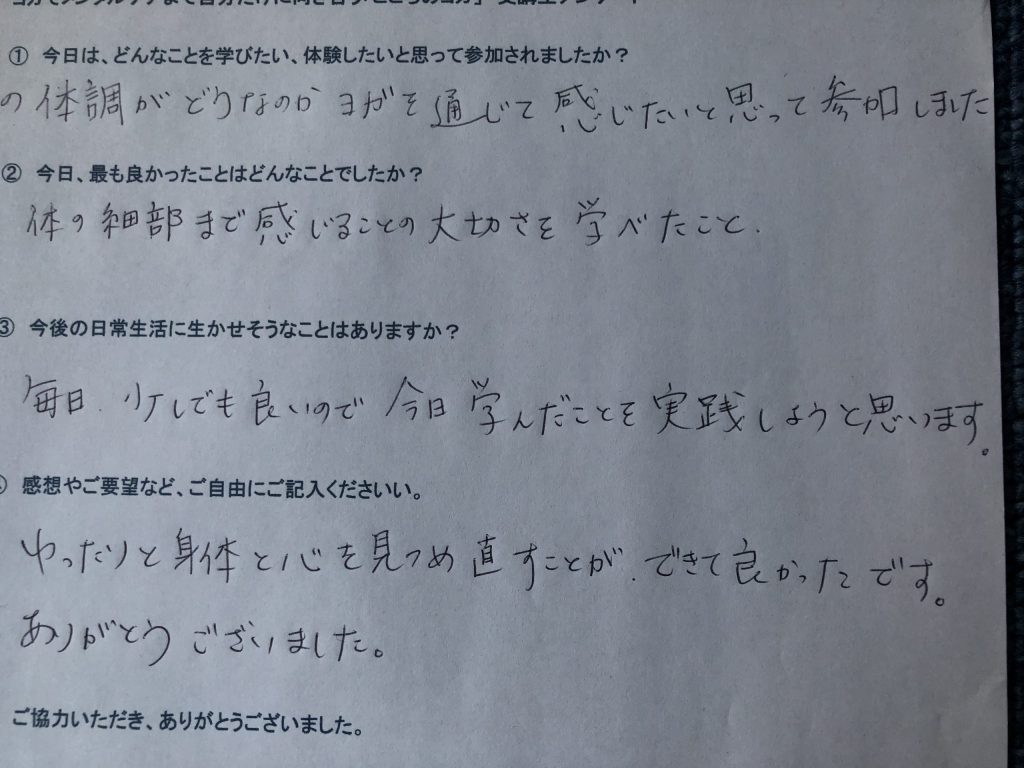 ① 今日は、どんなことを学びたい、体験したいと思って参加されましたか?
の体調がどうなのか ヨガを通じて感じたいと思って参加しました
② 今日、最も良かったことはどんなことでしたか?
体の細部まで感じることの大切さを学べたこと.
③ 今後の日常生活に生かせそうなことはありますか?
毎日. 少しでも良いので 今日 学んだことを実践しようと思います。
感想やご要望など、ご自由にご記入くださいい。
ゆったりと身体と心を見つめ直すことが. できて良かったです。
ありがとうございました。
ご協力いただき、ありがとうございました。